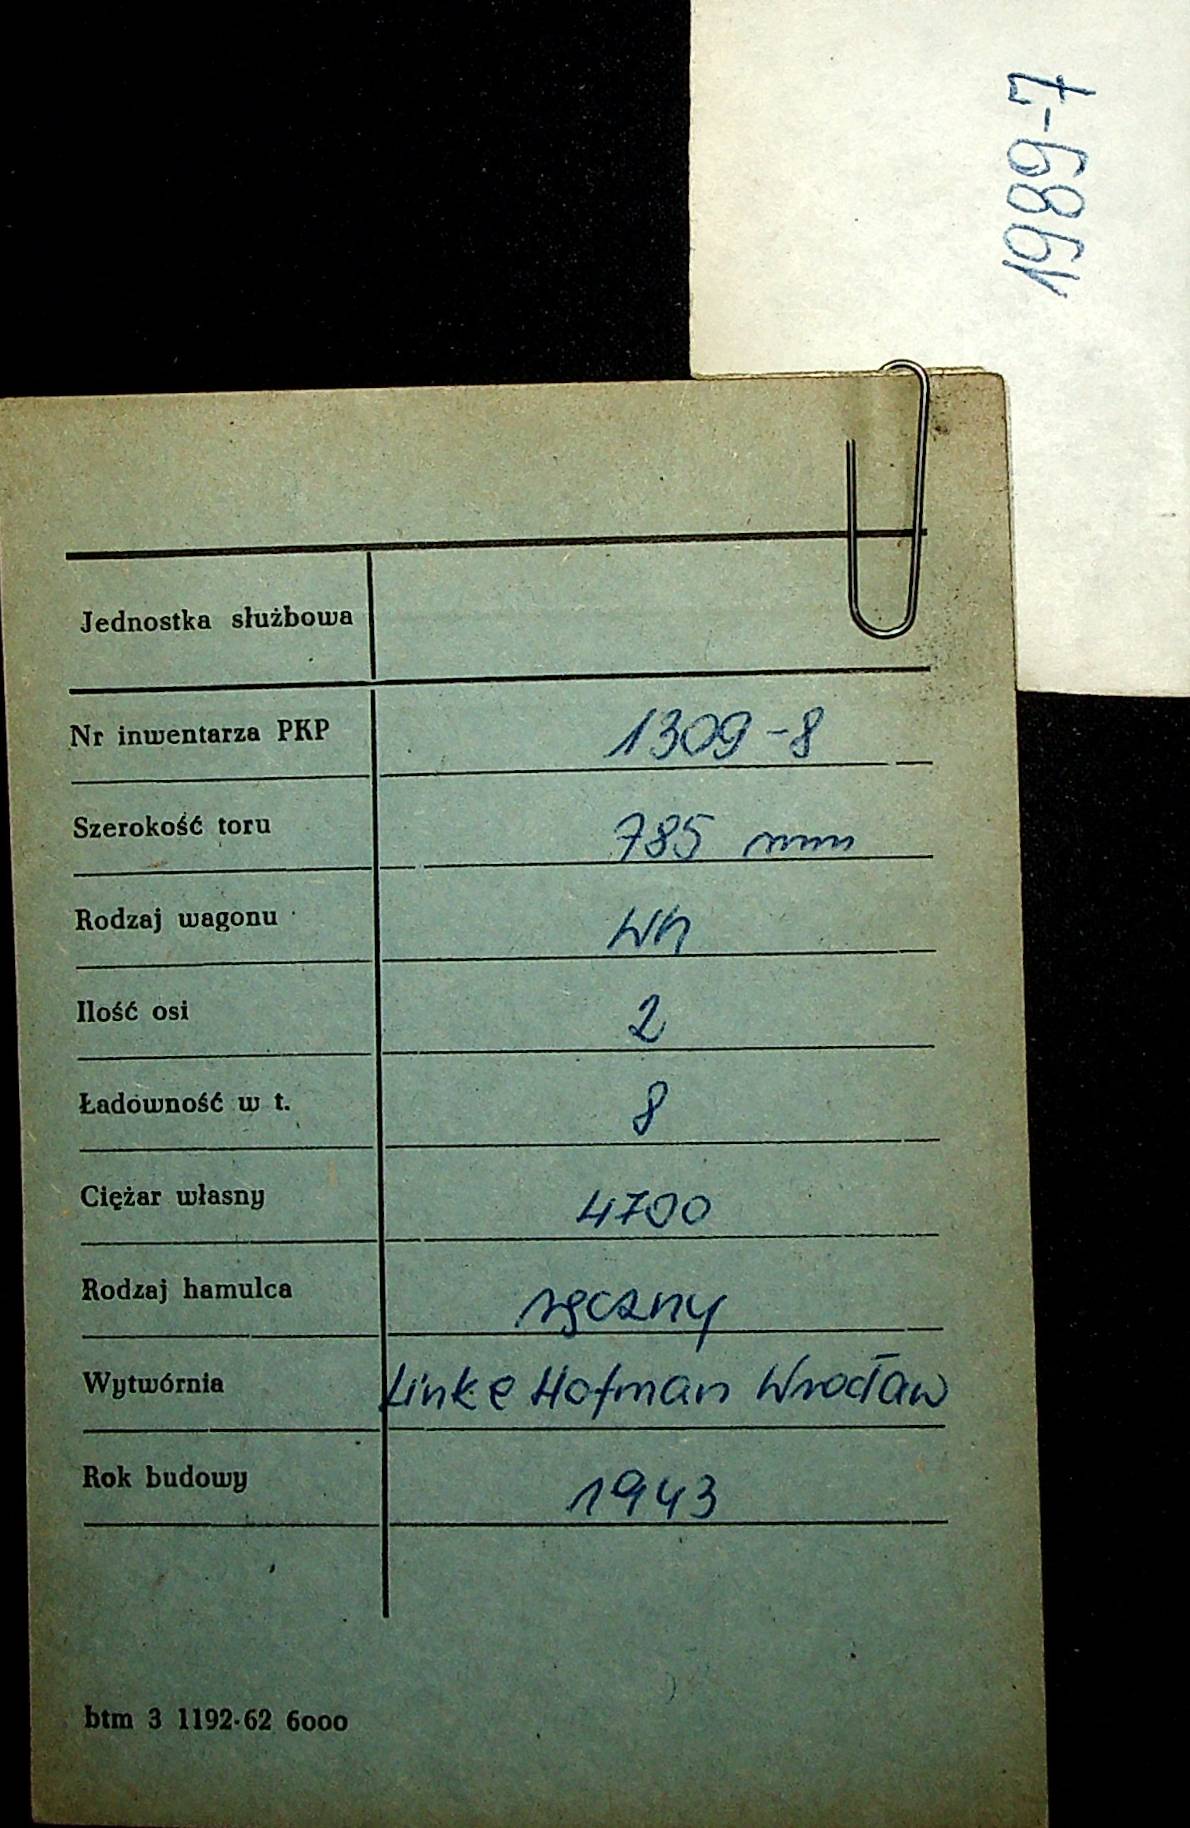 1989-7
Jednostka służbowa
Nr inwentarza PKP 1309-8
Szerokość toru 785 mm
Rodzaj wagonu Wh
Ilość osi 2
Ładowność w t. 8
Ciężar własny 4700
Rodzaj hamulca ręczny
Wytwórnia Linke Hofman Wrocław
Rok budowy 1943
btm 3 1192-62 6000